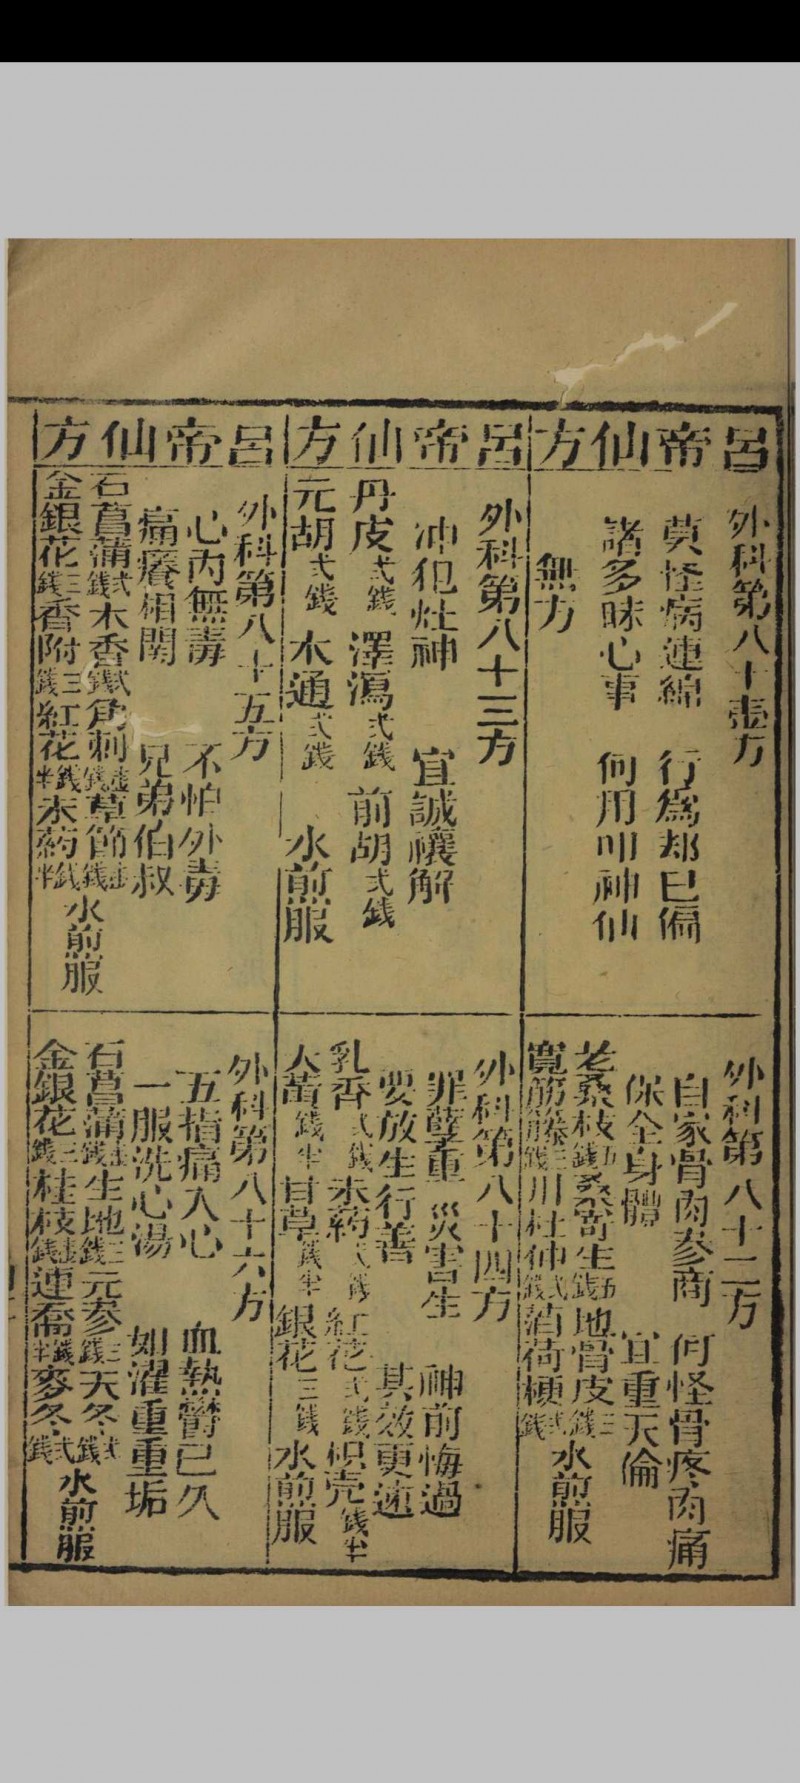 呂帝仙方
外科第八十壹方
莫怪病連綿　行為却已偏
諸多昧心事　何用叩神仙
無方
外科第八十二方
自家骨肉參商　何怪骨疼肉痛
保全身體　宜重天倫
老桑枝五錢桑寄生五錢地骨皮三錢
寬筋藤三錢川杜仲弍錢薄荷梗弍錢
水煎服
呂帝仙方
外科第八十三方
冲犯灶神　宜誠禳解
丹皮弍錢　澤瀉弍錢　前胡弍錢
元胡弍錢　木通弍錢　水煎服
外科第八十四方
罪孽重　災害生　神前悔過
要放生行善　其效更速
乳香弍錢　末葯　紅花弍錢　枳壳錢半
大黃錢半　甘草錢半　銀花三錢　水煎服
呂帝仙方
外科第八十五方
心內無毒　不怕外毒
痛癢相関　兄弟伯叔
石菖蒲弍錢木香弍錢角刺壹錢草節壹錢
金銀花三錢香附三錢紅花錢半末葯錢半
水煎服
外科第八十六方
五指痛入心　血熱欝已久
一服洗心湯　如濯重重垢
石菖蒲壹錢生地三錢元參三錢天冬弍錢
金銀花三錢桂枝壹錢連喬錢半麥冬弍錢
水煎服